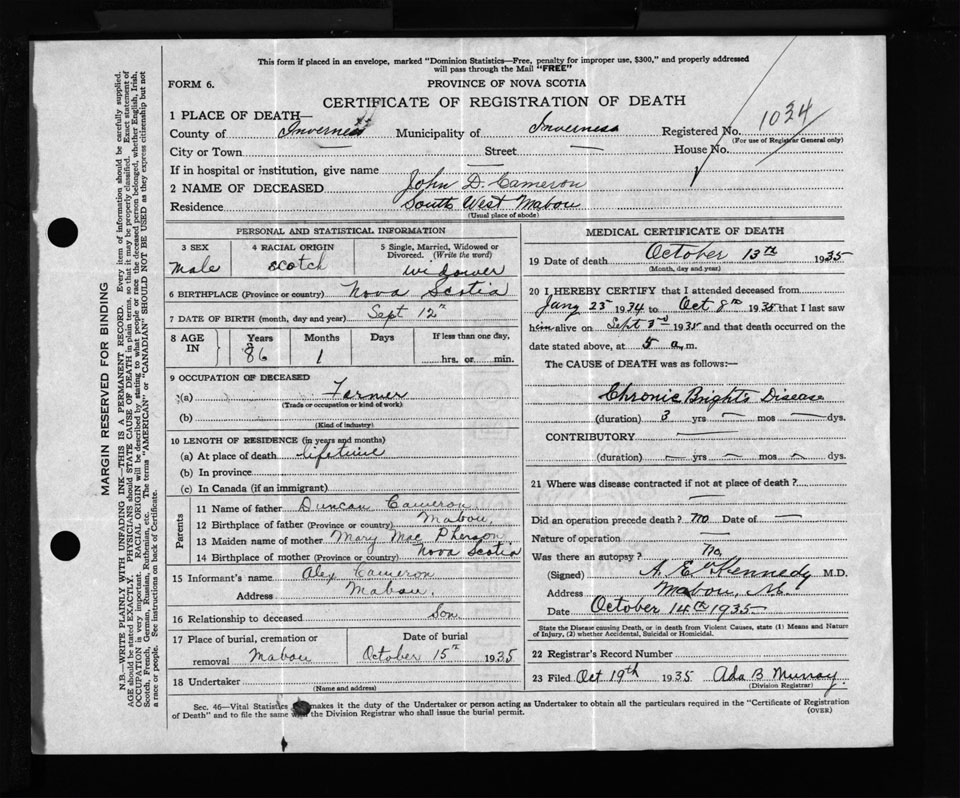 This form if placed in an envelope, marked "Dominion Statistics—Free, penalty for improper use, $300," and properly addressed
will pass through the Mail "FREE"
FORM 6.
PROVINCE OF NOVA SCOTIA
CERTIFICATE OF REGISTRATION OF DEATH
1 PLACE OF DEATH—
County of Inverness Municipality of Inverness Registered No. 1034
(For use of Registrar General only)
City or Town — Street — House No.
If in hospital or institution, give name —
2 NAME OF DECEASED John D. Cameron
Residence South West Mabou
(Usual place of abode)
PERSONAL AND STATISTICAL INFORMATION
3 SEX 4 RACIAL ORIGIN 5 Single, Married, Widowed or
Divorced. (Write the word)
Male Scotch widower
6 BIRTHPLACE (Province or country) Nova Scotia
7 DATE OF BIRTH (month, day and year) Sept 12th
8 AGE IN Years Months Days If less than one day,
86 1 hrs. or min.
9 OCCUPATION OF DECEASED
(a) Farmer
(Trade or occupation or kind of work)
(b)
(Kind of industry)
10 LENGTH OF RESIDENCE (in years and months)
(a) At place of death lifetime
(b) In province
(c) In Canada (if an immigrant)
Parents
11 Name of father Duncan Cameron
12 Birthplace of father (Province or country) Mabou,
13 Maiden name of mother Mary MacPherson
14 Birthplace of mother (Province or country) Nova Scotia
15 Informant's name Alex Cameron
Address Mabou.
16 Relationship to deceased Son
17 Place of burial, cremation or removal Mabou
Date of burial October 15th 1935
18 Undertaker
(Name and address)
MEDICAL CERTIFICATE OF DEATH
19 Date of death October 13th 1935
(Month, day and year)
20 I HEREBY CERTIFY that I attended deceased from
Jany 25 1934 to Oct 8th 1935 that I last saw
him alive on Sept 3rd 1935 and that death occurred on the
date stated above, at 5 a.m.
The CAUSE OF DEATH was as follows:—
Chronic Brights Disease
(duration) 3 yrs — mos — dys.
CONTRIBUTORY —
(duration) — yrs — mos — dys.
21 Where was disease contracted if not at place of death?
—
Did an operation precede death? No Date of —
Nature of operation —
Was there an autopsy? No,
(Signed) A. E. Kennedy M.D.
Address Mabou,
Date October 14th 1935
State the Disease causing Death, or in death from Violent Causes, state (1) Means and Nature
of Injury, (2) whether Accidental, Suicidal or Homicidal.
22 Registrar's Record Number
23 Filed Oct 19th 1935 Ada B Murray.
(Division Registrar)
Sec. 46—Vital Statistics makes it the duty of the Undertaker or person acting as Undertaker to obtain all the particulars required in the "Certificate of Registration
of Death" and to file the same with the Division Registrar who shall issue the burial permit.
(OVER)
MARGIN RESERVED FOR BINDING
N.B.—WRITE PLAINLY WITH UNFADING INK—THIS IS A PERMANENT RECORD. Every item of information should be carefully supplied.
AGE should be stated EXACTLY. PHYSICIANS should STATE CAUSE OF DEATH in plain terms, so that it may be properly classified. Exact statement of
OCCUPATION is very important. RACIAL ORIGIN will be described by stating to what people or race the deceased person belonged, whether English, Irish,
Scotch, French, German, Russian, Ruthenian, etc. The terms "AMERICAN" or "CANADIAN" SHOULD NOT BE USED as they express citizenship but not
a race or people. See instructions on back of Certificate.